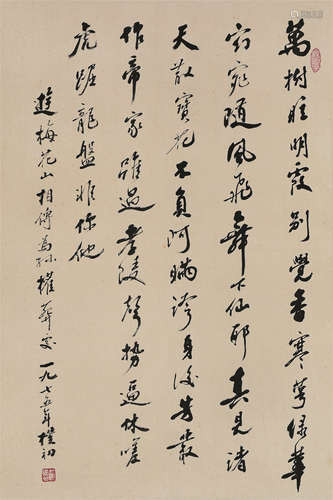 萬樹眩明霞別覺香寒萼綠華
窈窕随風飛舞下仙耶真見諸
天散寶花不負阿瞞誇身後芳叢
作帝家雖過孝陵聲勢逼休嗟
虎踞龍盤非你他
遊梅花山相傳為孫權葬處一九七五年樸初